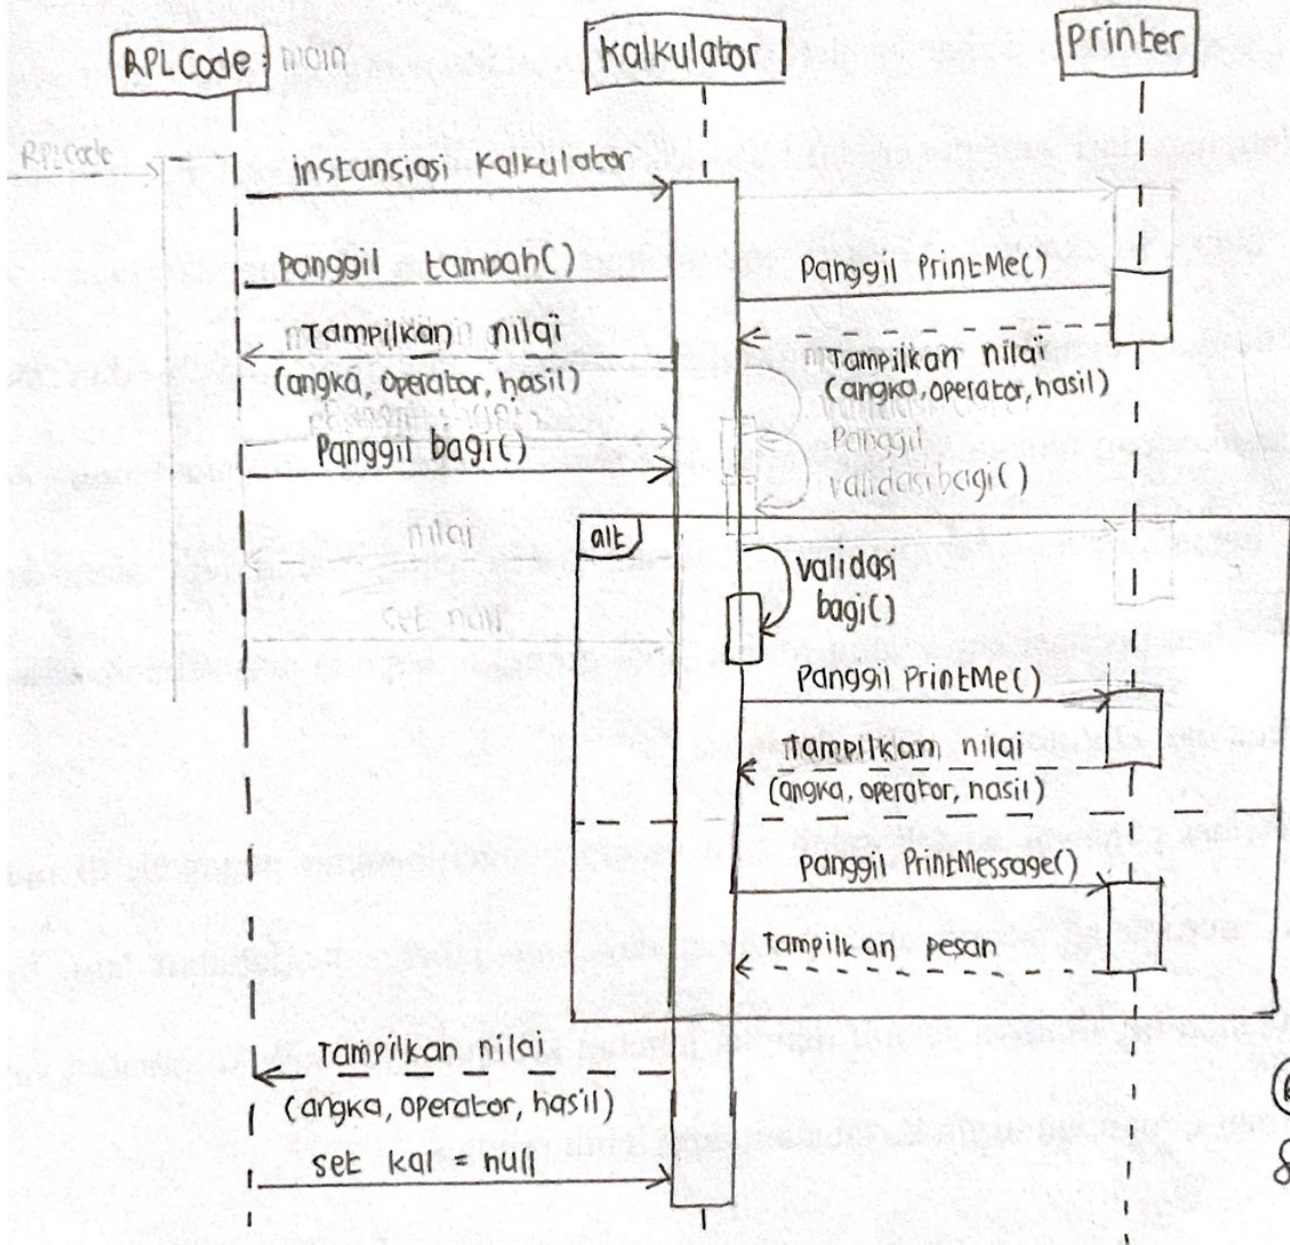 RPLCode : main
Kalkulator
Printer
RPLCode
instansiasi Kalkulator
Panggil tambah()
Panggil PrintMe()
Tampilkan nilai
(angka, operator, hasil)
Tampilkan nilai
(angka, operator, hasil)
Panggil bagi()
Panggil
validasibagi()
alt
nilai
validasi
bagi()
set null
Panggil PrintMe()
Tampilkan nilai
(angka, operator, hasil)
Panggil PrintMessage()
Tampilkan pesan
Tampilkan nilai
(angka, operator, hasil)
set kal = null